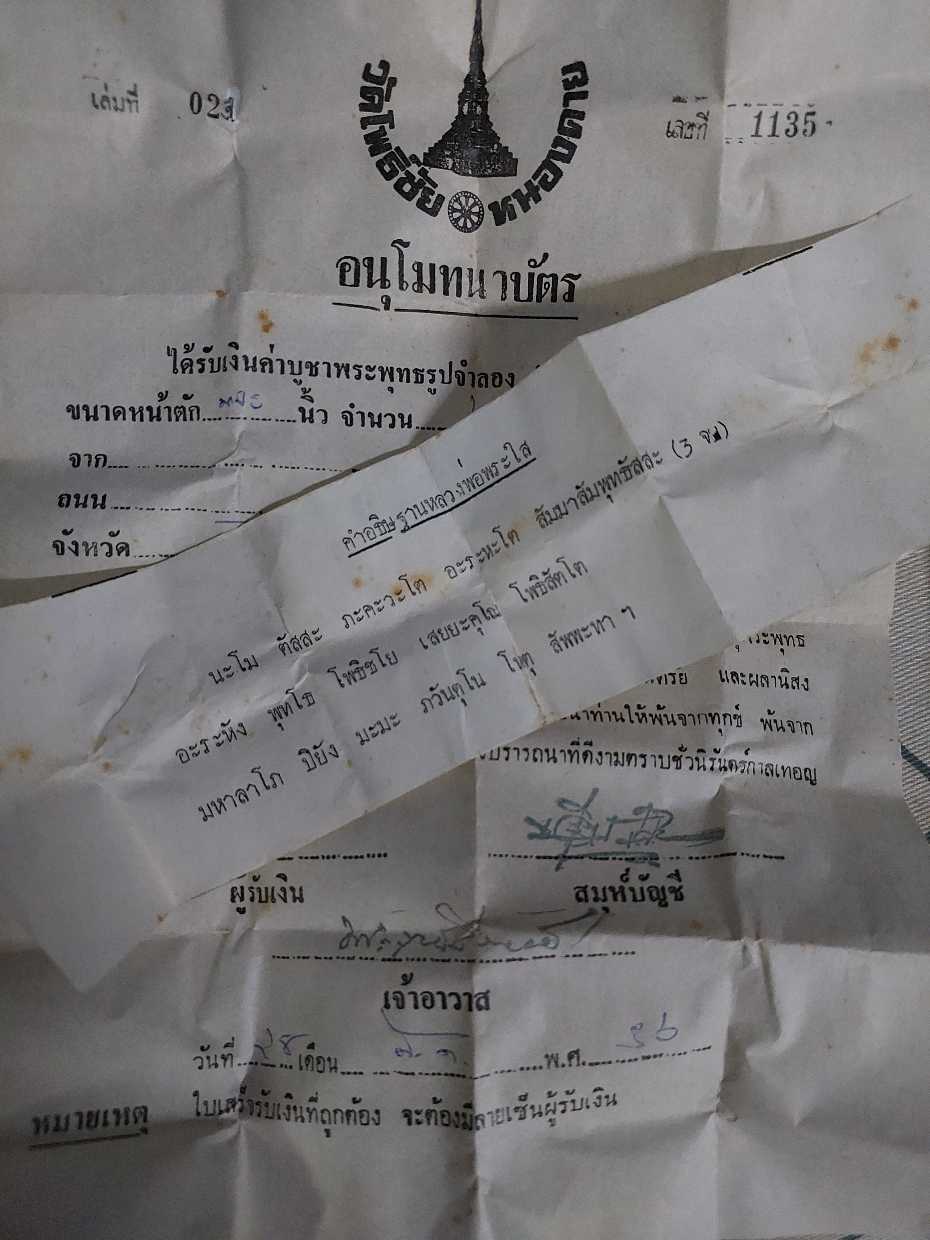 เล่มที่ 021
เลขที่ 1135
วัดโพธิ์ชัย หนองคาย
อนุโมทนาบัตร
ได้รับเงินค่าบูชาพระพุทธรูปจำลอง
ขนาดหน้าตัก นิ้ว จำนวน
จาก
ถนน
จังหวัด
คำอธิษฐานหลวงพ่อพระใส
นะโม ตัสสะ ภะคะวะโต อะระหะโต สัมมาสัมพุทธัสสะ (3 จบ)
อะระหัง พุทโธ โพธิชโย เสยยะคุโณ โพธิสัตโต
มหาลาโภ ปิยัง มะมะ ภวันตุโน โหตุ สัพพะทา ฯ
และผลานิสง
ท่านให้พ้นจากทุกข์ พ้นจาก
ปรารถนาที่ดีงามตราบชั่วนิรันดร์กาลเทอญ
ผู้รับเงิน
สมุห์บัญชี
เจ้าอาวาส
วันที่ ๒๘ เดือน พ.ศ. ๓๖
หมายเหตุ ใบเสร็จรับเงินที่ถูกต้อง จะต้องมีลายเซ็นผู้รับเงิน